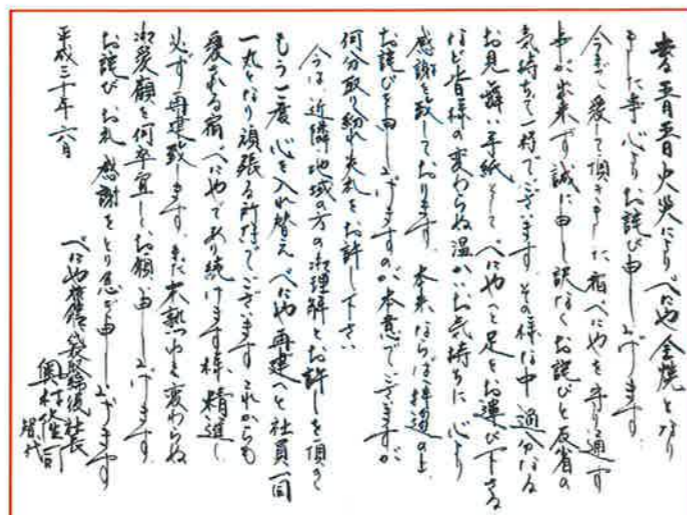 去る五月五日火災によりべにや全焼となり
ました事心よりお詫び申し上げます。
今まで愛して頂きました宿べにやを守り通す
事が出来ず誠に申し訳なくお詫びと反省の
気持ちで一杯でございます。その様な中過分なる
お見舞い手紙そしてべにやへと足をお運び下さる
など皆様の変わらぬ温かいお気持ちに心より
感謝を致しております。本来ならば拝趨の上、
お詫びを申し上げますのが本意でございますが
何分取り紛れ失礼をお許し下さい
今は、近隣、地域の方の御理解とお許しを頂き
もう一度心を入れ替えべにや再建へと社員一同
一丸となり頑張る所存でございます。これからも
愛される宿べにやであり続けます様、精進し
必ず再建致します。まだ未熟ゆえ変わらぬ
御愛顧を何卒宜しくお願い申し上げます。
お詫び、お礼、感謝をとり急ぎ申し上げます
平成三十年六月
べにや旅館 代表取締役社長
奥村隆司
智代